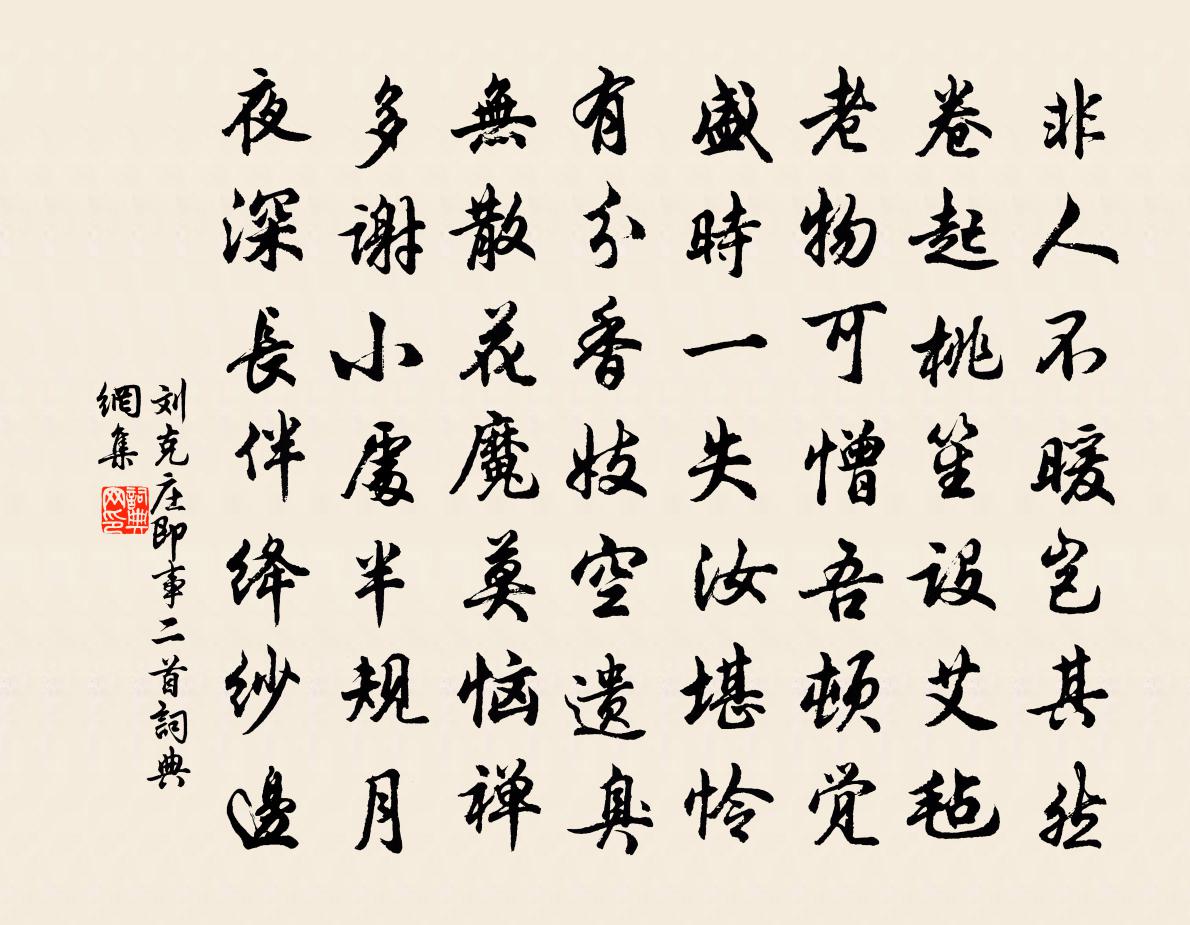 非人不暖岂其然
卷起桃笙设艾毡
老物可憎吾顿觉
盛時一失汝堪怜
有分香妓空遗臭
無散花魔莫恼禅
多谢小窗半规月
夜深長伴绛纱邊
刘克庄即事二首詞典
網集
詞典